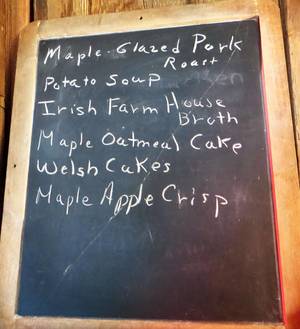 Maple-Glazed Pork
Roast
Potato Soup
Irish Farm House
Broth
Maple Oatmeal Cake
Welsh Cakes
Maple Apple Crisp